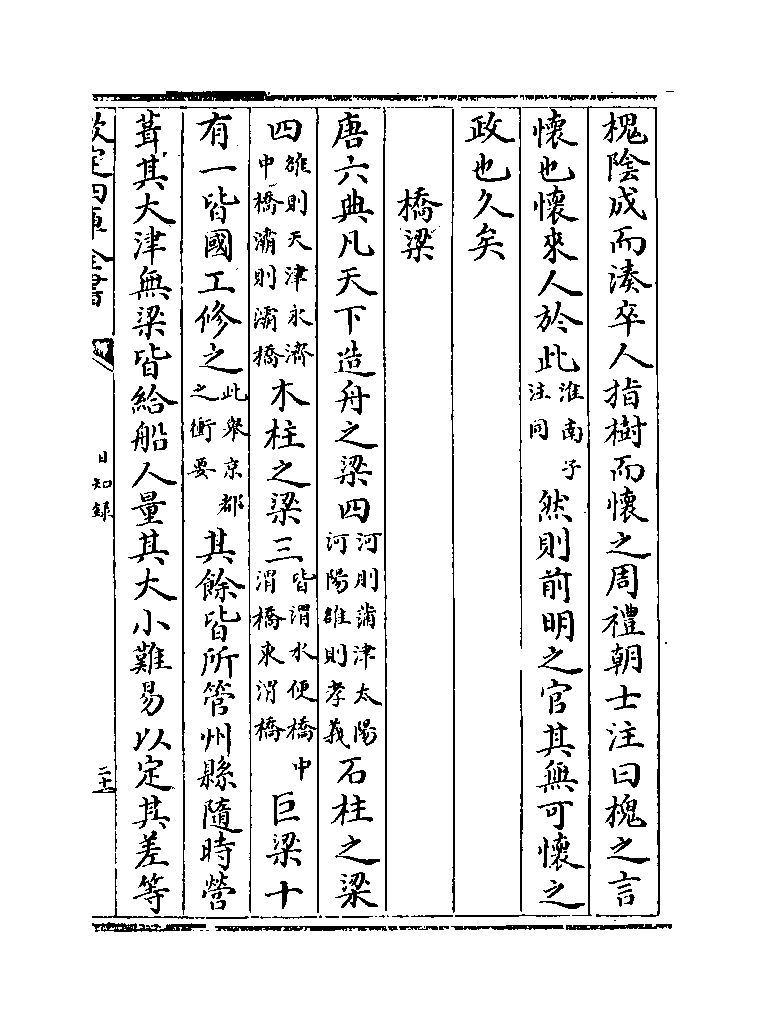 槐陰成而湊卒人指樹而懷之周禮朝士注曰槐之言
懷也懷來人於此淮南子注同然則前明之官其無可懷之
政也久矣
橋梁
唐六典凡天下造舟之梁四河則蒲津太陽河陽雒則孝義石柱之梁
四雒則天津永濟中橋灞則灞橋木柱之梁三皆渭水便橋中渭橋東渭橋巨梁十
有一皆國工修之此舉京都之衝要其餘皆所管州縣隨時營
葺其大津無梁皆給船人量其大小難易以定其差等
欽定四庫全書 日知錄 二十二